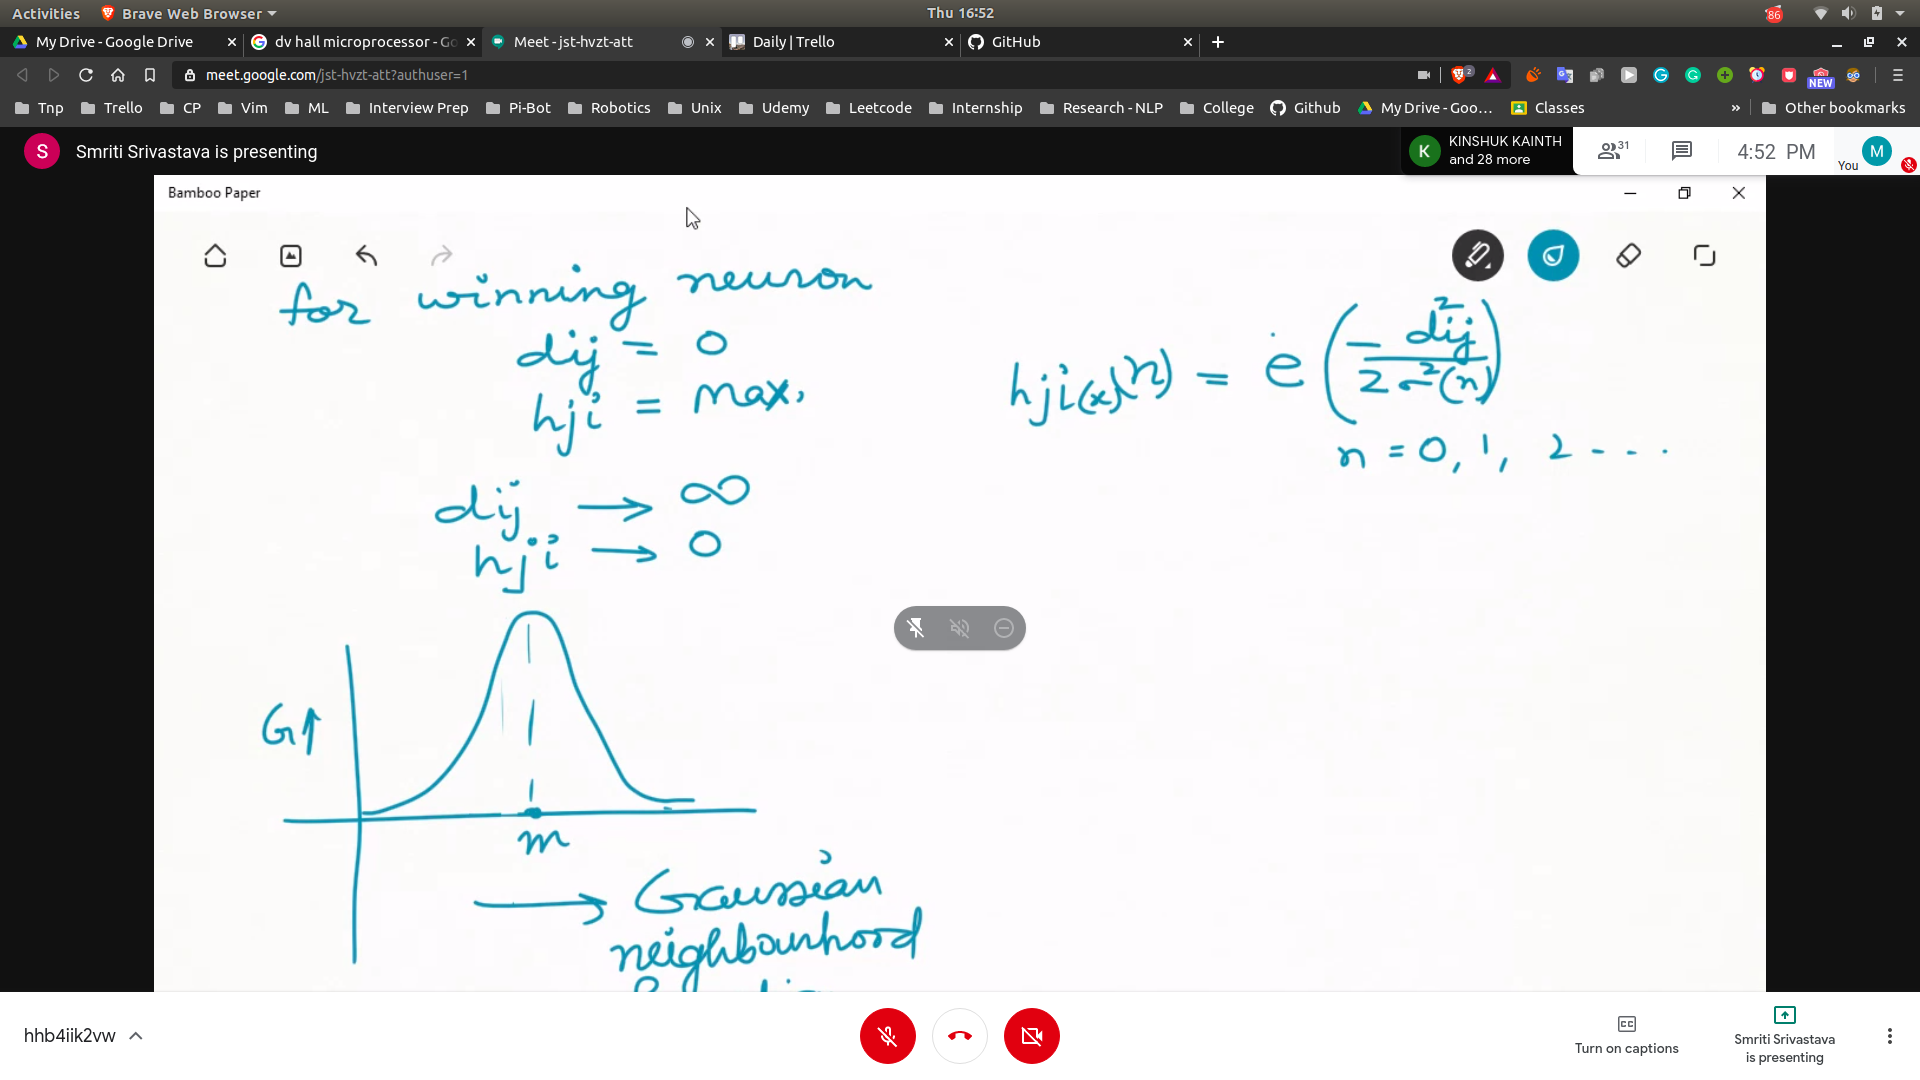 Activities Brave Web Browser Thu 16:52 86
My Drive - Google Drive dv hall microprocessor - Go Meet - jst-hvzt-att Daily | Trello GitHub
meet.google.com/jst-hvzt-att?authuser=1 2 NEW
Tnp Trello CP Vim ML Interview Prep Pi-Bot Robotics Unix Udemy Leetcode Internship Research - NLP College Github My Drive - Goo... Classes » Other bookmarks
S Smriti Srivastava is presenting
K KINSHUK KAINTH
and 28 more
31 4:52 PM You M
Bamboo Paper
for winning neuron
dij = 0
hji = max.
dij → ∞
hji → 0
hji(x)(n) = e (- dij² / 2σ²(n))
n = 0, 1, 2 - - - .
G↑
m
→ Gaussian
neighbourhood
hhb4iik2vw
Turn on captions
Smriti Srivastava
is presenting